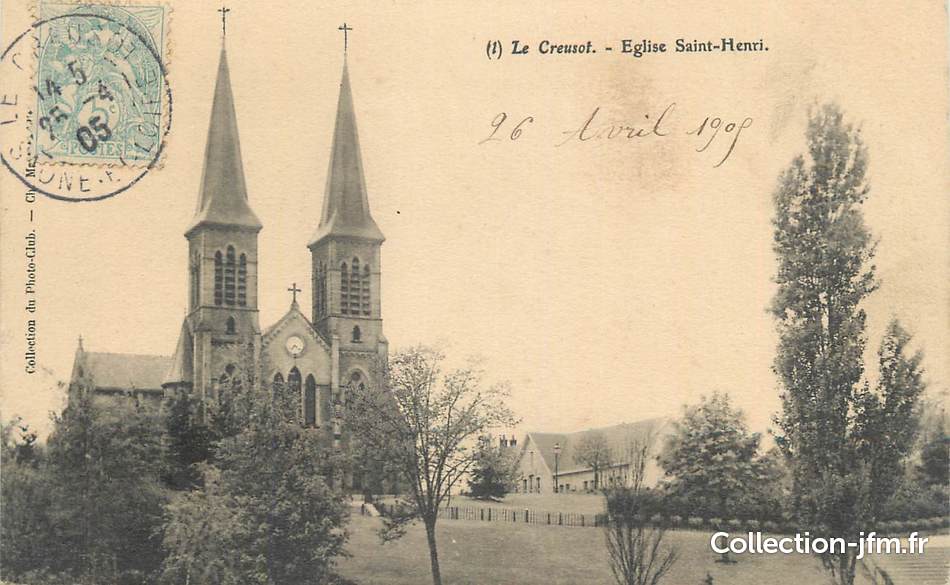 (1) Le Creusot. - Eglise Saint-Henri.
26 Avril 1905
LE CREUSOT
14 5
25 -4
05
SAONE-ET-LOIRE
5c
POSTES
Collection du Photo-Club. —
Collection-jfm.fr